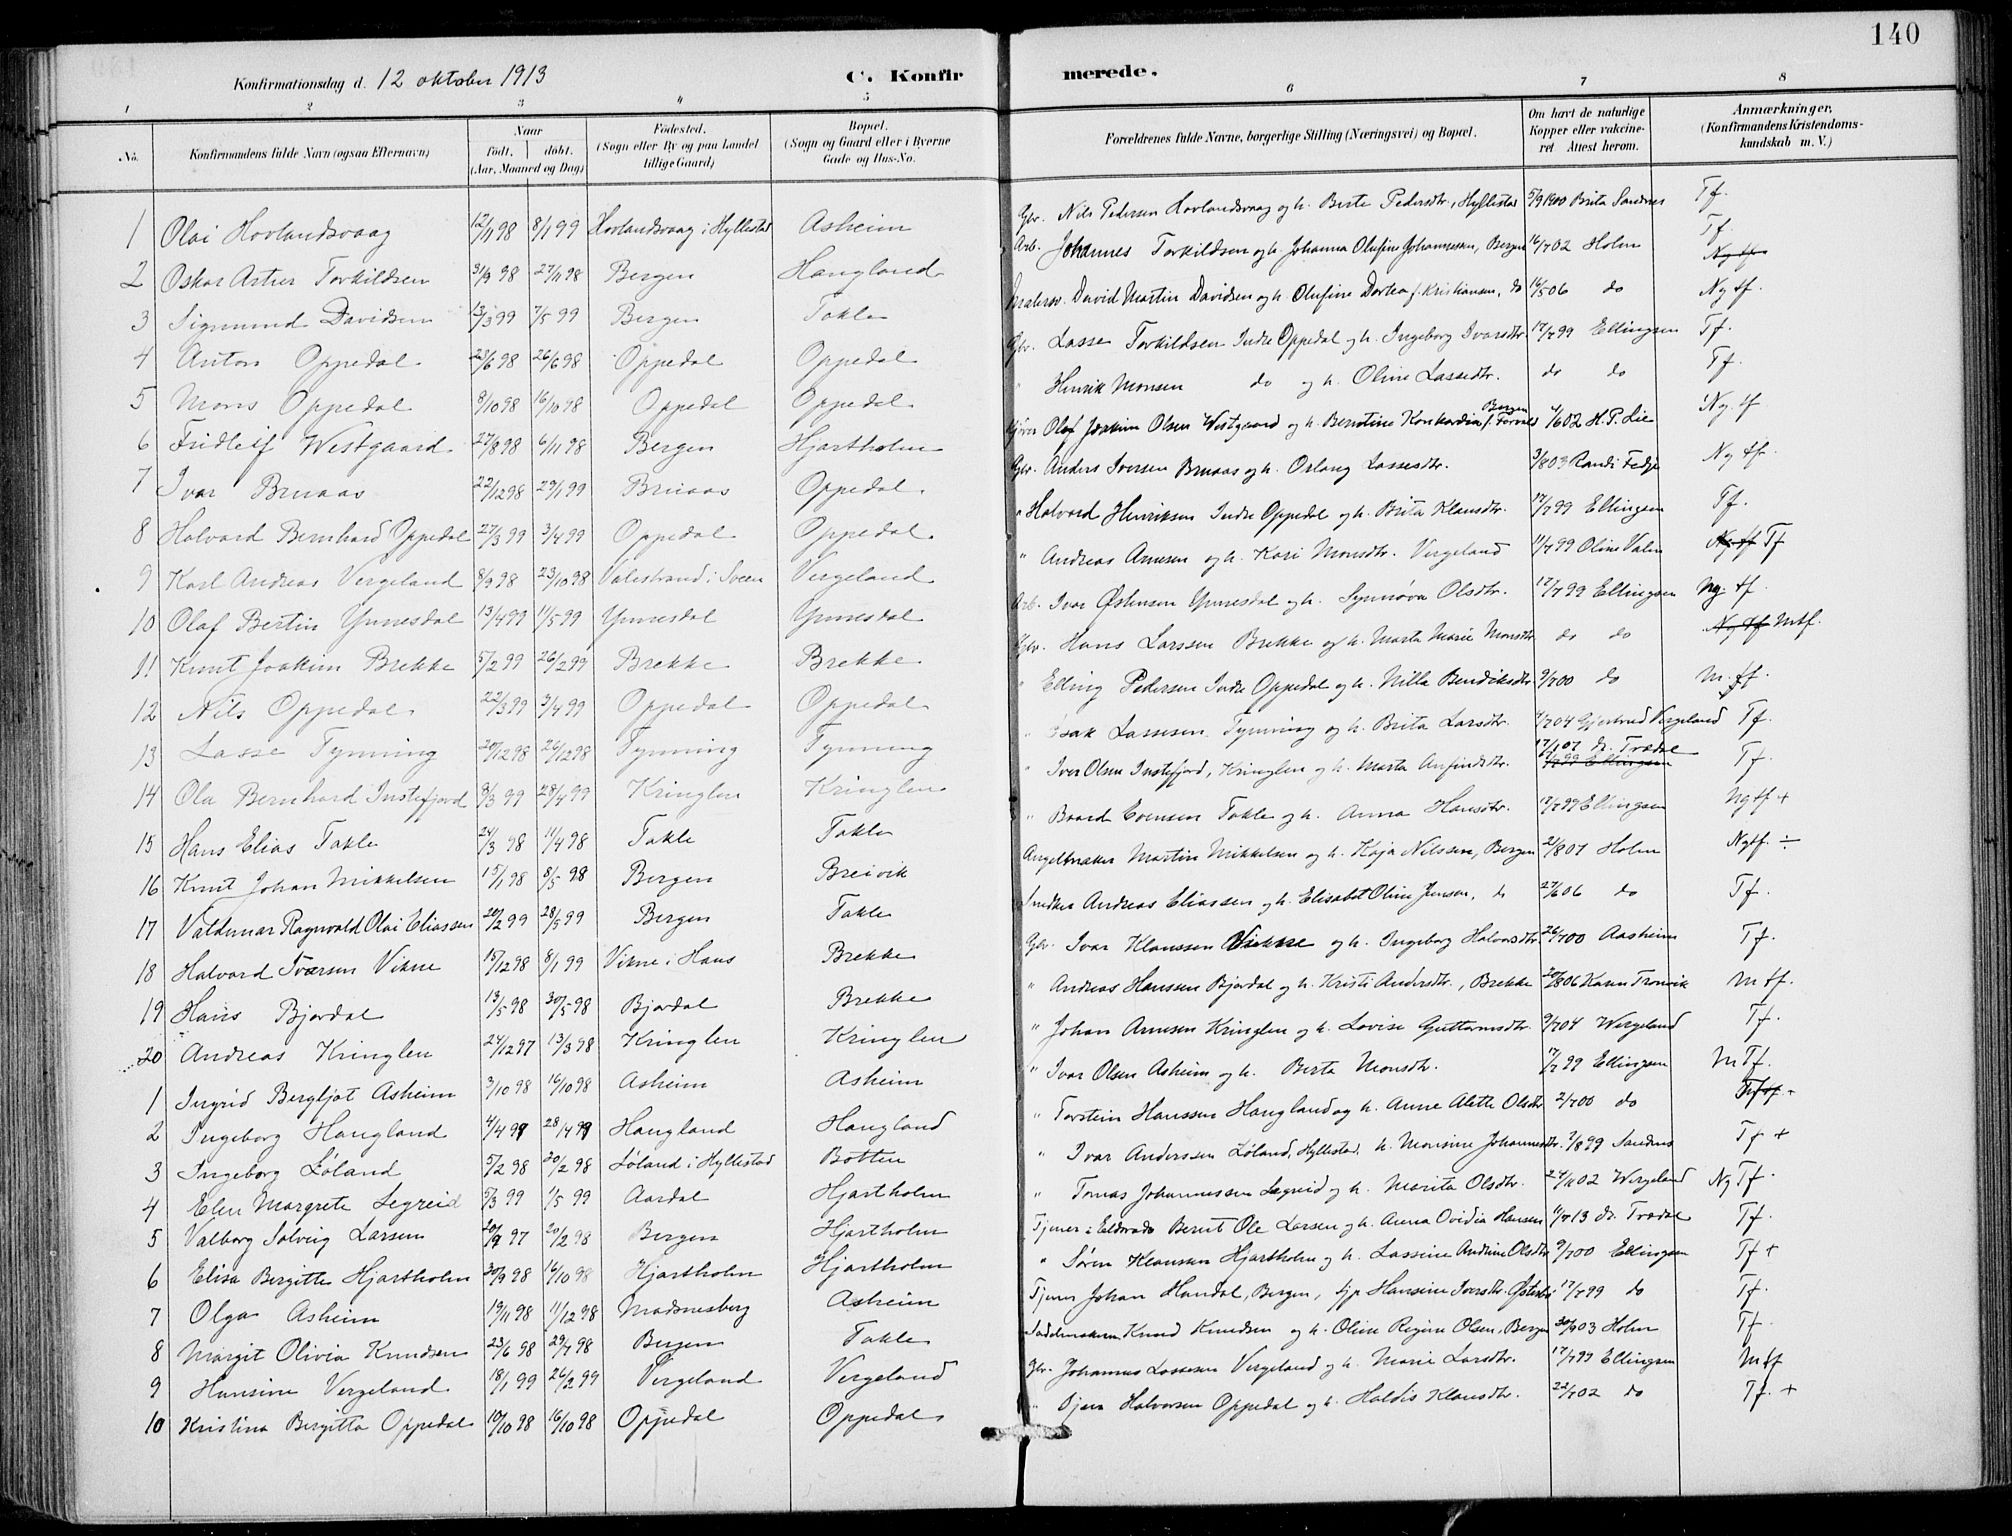 140
Konfirmationsdag d. 12 oktober 1913 C. Konfirmerede.
1 2 3 4 5 6 7 8
No. Konfirmandens fulde Navn (ogsaa Efternavn) Naar født, døbt. (Aar, Maaned og Dag) Fødested. (Sogn eller By og paa Landet tillige Gaard) Bopæl. (Sogn og Gaard eller i Byerne Gade og Hus-No. Forældrenes fulde Navne, borgerlige Stilling (Næringsvei) og Bopæl. Om havt de naturlige Kopper eller vakcineret Attest herom. Anmærkninger. (Konfirmandens Kristendomskundskab m. V.)
1 Olai Hovlandsvaag 12/11 98 8/1 99 Hovlandsvaag i Hyllestad Asheim Gbr. Nils Pedersen Hovlandsvaag og h. Berte Pedersdtr., Hyllestad 5/9 1900 Brita Sandnes Tf.
2 Oskar Astrer Torkildsen 3/9 98 27/11 98 Bergen Haugland Arb. Johannes Torkildsen og h. Johanna Olufine Johannessen, Bergen 16/7 02 Holm Tf.
3 Sigmund Davidsen 13/3 99 7/5 99 Bergen Takle David Martin Davidsen og h. Olufine Dortea f. Kristiansen, do 16/5 06 do Ng tf.
4 Anton Oppedal 23/6 98 26/6 98 Oppedal Oppedal Gbr. Lasse Torkildsen Indre Oppedal og h. Ingeborg Ivarsdtr. 17/7 99 Ellingsen Tf.
5 Mons Oppedal 8/10 98 16/10 98 Oppedal Oppedal " Henrik Monsen do og h. Oline Lassedtr. do do Tf.
6 Fridleif Westgaard 27/8 98 6/11 98 Bergen Hjartholm Olaf Joakim Olsen Westgaard og h. Berntine Konkordia f. Torsnes Bergen 4/6 02 H.P. Lie Ng. tf
7 Ivar Bruaas 22/12 98 29/1 99 Bruaas Oppedal Gbr. Anders Iversen Bruaas og h. Oslaug Lassesdtr. 3/8 03 Randi Fedje Ng tf.
8 Halvard Bernhard Oppedal 27/3 99 3/4 99 Oppedal Oppedal " Halvard Henriksen Indre Oppedal og h. Brita Klausdtr. 17/7 99 Ellingsen Tf.
9 Karl Andreas Vergeland 8/9 98 23/10 98 Valestrand i Sveen Vergeland " Andreas Arnesen og h. Kari Monsdtr. Vergeland 11/7 99 Oline Valen Ng tf Tf
10 Olaf Bertin Ynnesdal 13/4 99 11/5 99 Ynnesdal Ynnesdal Arb. Ivar Østensen Ynnesdal og h. Synnøva Olsdtr. 17/7 99 Ellingsen Ng. tf.
11 Knut Joakim Brekke 5/2 99 26/2 99 Brekke Brekke Gbr. Hans Larssen Brekke og h. Marta Marie Monsdtr do do Ng tf Mtf.
12 Nils Oppedal 22/3 99 3/4 99 Oppedal Oppedal " Elling Pedersen Indre Oppedal og h. Nilla Bendiksdtr 9/7 00 do M. tf.
13 Lasse Tynning 20/12 98 26/12 98 Tynning Tynning " Isak Lassesen Tynning og h. Brita Larsdtr. 4/7 04 Gjertrud Vergeland Tf.
14 Ola Bernhard Instefjord 8/3 99 28/4 99 Kringlen Kringlen " Iver Olsen Instefjord, Kringlen og h. Marta Anfindsdtr. 17/1 07 dr. Trædal 17/7 99 Ellingsen Tf.
15 Hans Elias Takle 24/3 98 11/4 98 Takle Takle " Baard Evensen Takle og h. Anna Hansdtr. 17/7 99 Ellingsen Ngtf +
16 Knut Johan Mikkelsen 15/1 98 8/5 98 Bergen Breivik Angelmaker Martin Mikkelsen og h. Kaja Nilssen, Bergen 21/8 07 Holm Ngtf. ÷
17 Valdemar Ragnvald Olai Eliassen 20/2 99 28/5 99 Bergen Takle Snedker Andreas Eliassen og h. Elisabet Oline Jensen, do 27/6 06 do Tf.
18 Halvard Ivarsen Vikne 15/12 98 8/1 99 Vikne i Haus Brekke Gbr. Ivar Klaussen Vikne og h. Ingeborg Halvorsdtr 26/7 00 Aasheim Tf.
19 Hans Bjordal 13/5 98 30/5 98 Bjordal Brekke " Andreas Hanssen Bjordal og h. Kristi Andersdtr., Brekke 20/8 06 Karen Tronvik M tf.
20 Andreas Kringlen 24/12 97 13/3 98 Kringlen Kringlen " Johan Arnesen Kringlen og h. Lovise Guttormsdtr. 9/7 04 Wergeland Tf.
1 Ingrid Bergljot Asheim 3/10 98 16/10 98 Asheim Asheim " Ivar Olsen Asheim og h. Berta Monsdtr. 17/7 99 Ellingsen M Tf.
2 Ingeborg Haugland 4/4 99 28/4 99 Haugland Haugland " Torstein Hanssen Haugland og h. Anne Alette Olsdtr 2/7 00 do
3 Ingeborg Løland 5/2 98 20/2 98 Løland i Hyllestad Botten " Ivar Anderssen Løland, Hyllestad, h. Monsine Johannesdtr. 7/8 99 Sandnes Tf +
4 Elen Margrete Segreid 5/3 99 1/5 99 Aardal Hjartholm " Tomas Johannessen Segreid og h. Marita Olsdtr. 24/11 02 Wergeland Ng Tf.
5 Valborg Solveig Larsen 20/9 97 20/2 98 Bergen Hjartholm Tjener i Eldorado Bernt Ole Larsen og h. Anna Ovidia Hansen 11/7 13 dr. Trædal Tf.
6 Elisa Bergitte Hjartholm 30/9 98 16/10 98 Hjartholm Hjartholm " Søren Klaussen Hjartholm og h. Lassine Andrine Olsdtr 9/7 00 Ellingsen Tf +
7 Olga Asheim 19/11 98 11/12 98 Madsnesberg Asheim Tjener Johan Handal, Bergen, Hansine Iversdtr. 17/7 99 do Tf.
8 Margit Olivia Knudsen 23/6 98 29/7 98 Bergen Takle Sadelmakeren Knud Knudsen og h. Oline Regine Olsen, Bergen 30/9 03 Holm Tf.
9 Hansine Vergeland 18/1 99 26/2 99 Vergeland Vergeland Gbr. Johannes Lassesen Vergeland og h. Marie Larsdtr. 17/7 99 Ellingsen M tf
10 Kristina Bergitta Oppedal 10/10 98 16/10 98 Oppedal Oppedal " Halvorsen Oppedal og h. Haldis Klausdtr. 22/7 02 do Tf. +